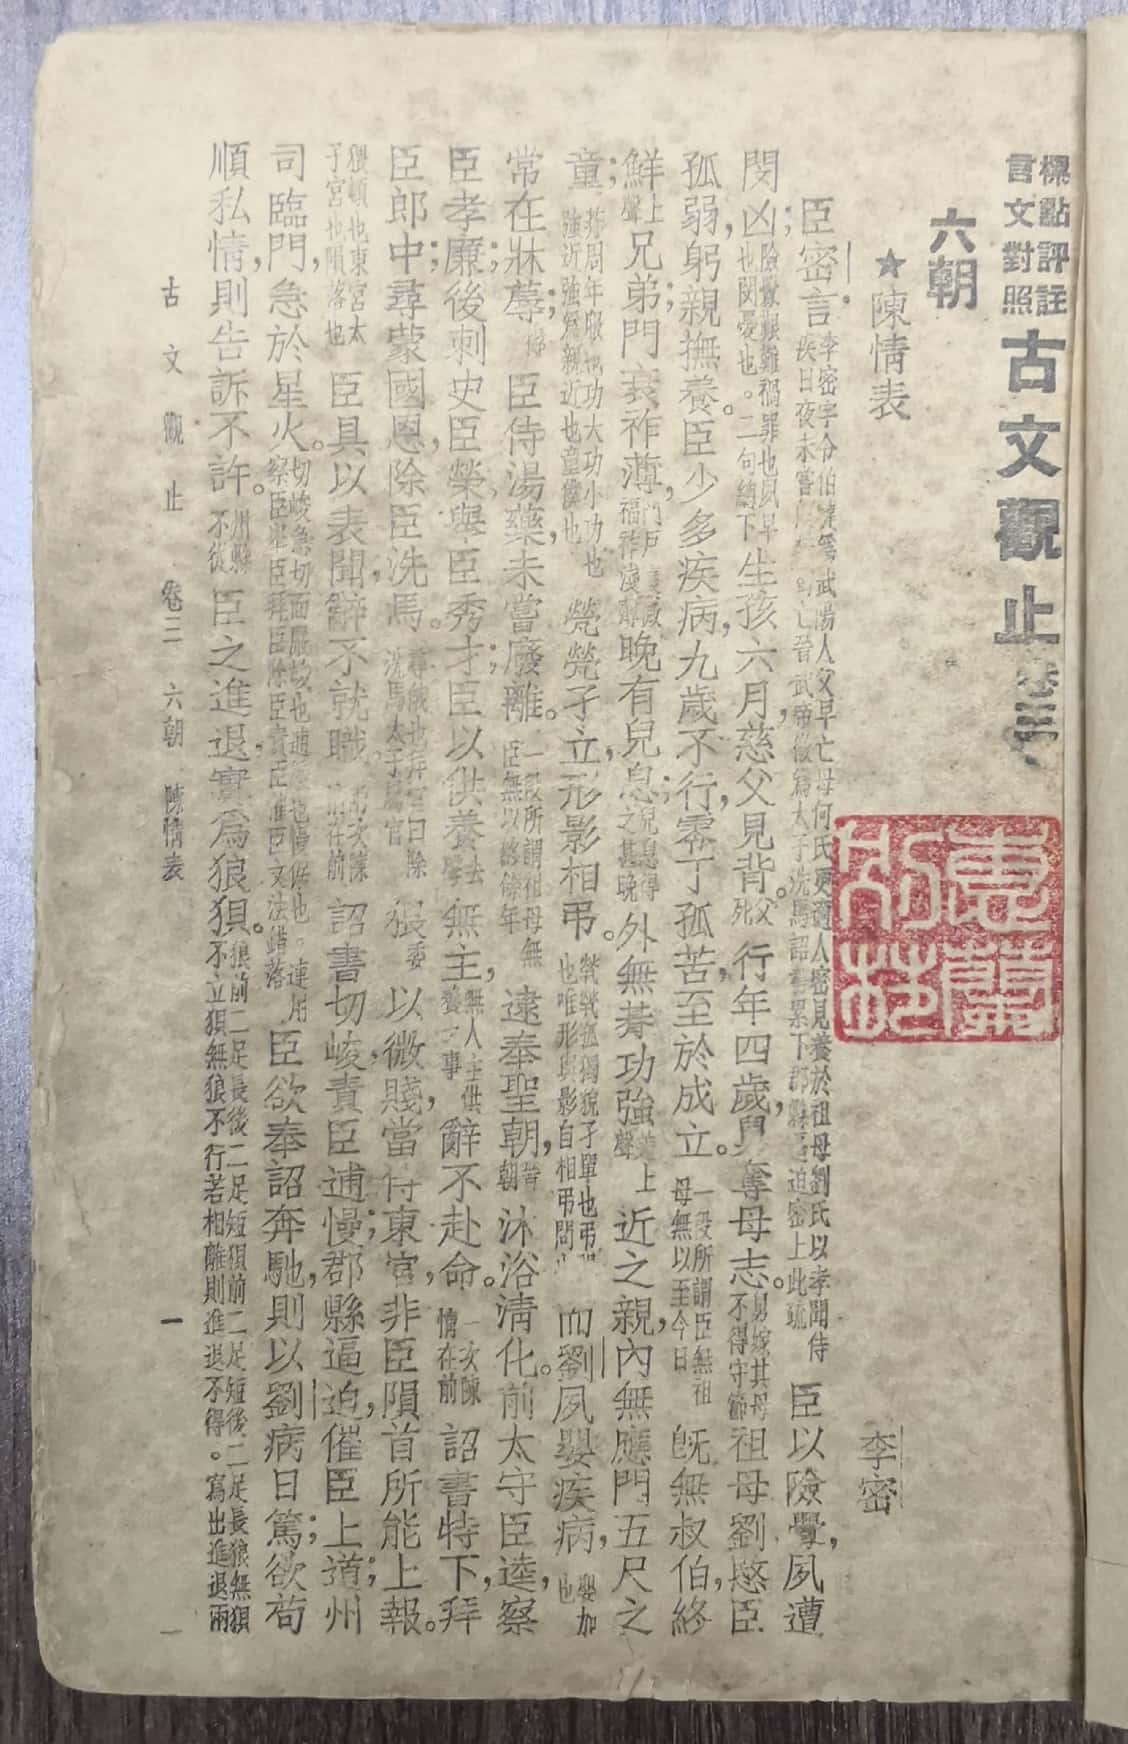 標點評註
言文對照
古文觀止卷三
六朝
★陳情表
李密
臣密言李密字令伯犍爲武陽人父早亡母何氏更適人密見養於祖母劉氏以孝聞侍
疾日夜未嘗 亡晉武帝徵爲太子洗馬詔書累下郡縣逼迫密上此疏 臣以險釁夙遭
閔凶險釁艱難禍罪也夙早
也閔憂也。二句總下 生孩六月慈父見背父
死 行年四歲舅奪母志。舅嫁其母
不得守節 祖母劉愍臣
孤弱躬親撫養。臣少多疾病九歲不行零丁孤苦至於成立。一段所謂臣無祖
母無以至今日 旣無叔伯終
鮮上
聲 兄弟門衰祚薄門戶衰微
福祚淺薄 晚有兒息兒息得
之甚晚 外無朞功強上
聲 近之親內無應門五尺之
童朞周年服也功大功小功也
強近強爲親近也童僕也 煢煢孑立形影相弔。煢煢孤獨貌孑單也弔問
也唯形與影自相弔問 而劉夙嬰疾病嬰加
也
常在牀蓐臣侍湯藥未嘗廢離。一段所謂祖母無
臣無以終餘年 逮奉聖朝晉
朝 沐浴淸化。前太守臣逵察
臣孝廉後刺史臣榮舉臣秀才臣以供養去
聲 無主無人主供
養之事 辭不赴命。一次陳
情在前 詔書特下拜
臣郎中尋蒙國恩除臣洗馬。尋俄也拜官曰除
洗馬太子屬官 猥委 以微賤當侍東宮非臣隕首所能上報。
猥頓也東宮太
子宮也隕落也 臣具以表聞辭不就職二次陳
情在前 詔書切峻責臣逋慢郡縣逼迫催臣上道州
司臨門急於星火。切峻急切而嚴峻也逋 也慢倨也。連用
察臣舉臣拜臣除臣責臣催臣文法錯落 臣欲奉詔奔馳則以劉病日篤欲苟
順私情則告訴不許。州縣
不從 臣之進退實爲狼狽。狼前二足長後二足短狽前二足短後二足長狼無狽
不立狽無狼不行若相離則進退不得。寫出進退兩
古文觀止 卷三 六朝 陳情表 一